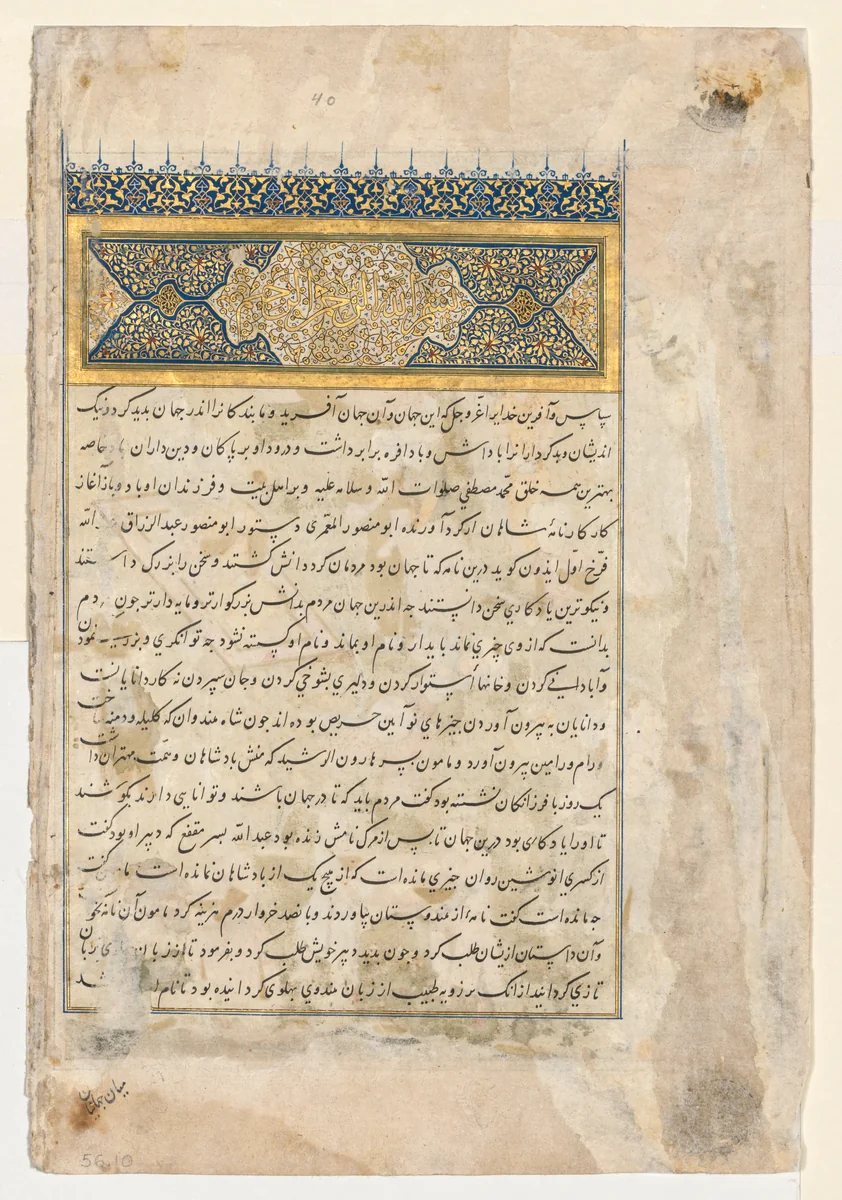 40
بسم الله الرحمن الرحیم
سپاس وآفرین خدایرا عزّ وجل که این جهان وآن جهان آفرید و ما بندکانرا اندر جهان بدید کرد ونیک
اندیشان وبدکردارانرا باداش وبادافره برابر داشت ودرود او بر پاکان ودین داران باد خاصه
بهترین همه خلق محمّد مصطفی صلوات الله وسلامه علیه وبر اهل بیت وفرزندان او باد وباز آغاز
کار کارنامهٔ شاهان از کردآورنده ابو منصور المعمّری دستور ابو منصور عبد الرزاق الله
فرّخ اوّل ایذون کوید درین نامه که تا جهان بود مردمان کرد دانش کشتند وسخن را بزرک داشتند
ونیکوترین یادکاری سخن دانستند جه اندرین جهان مردم بدانش بزرکوارتر ومایه دارتر جون مردم
بدانست که از وی جیزی نماند بایدار و نام او بماند و نام او کسسته نشود جه توانکری و نمودن
وآبادانی کردن وخانها استوار کردن ودلیری بشوخی کردن وجان سپردن نه کار دانایانست
ودانایان به بیرون آوردن جیزهای نوآین حریص بوده اند جون شاه هندوان که کلیله ودمنه ساخت
ورام ورامین بیرون آورد ومامون بسر هارون الرشید که منش بادشاهان وهمّت مهتران داشت
یک روز با فرزانکان نشسته بود کفت مردم باید که تا در جهان باشند وتوانایی دارند بکوشند
تا او را یادکاری بود درین جهان تا بس از مرک نامش زنده بود عبد الله بسر مقفع که دبیر او بود کفت
از کسری انوشین روان جیزی مانده است که از هیچ یک از بادشاهان نمانده است مامون کفت
جه مانده است کفت نامهٔ از هندوستان بیاوردند وبانصد خروار درم هزینه کرد مامون آن نامه بخواند
وآن داستان ازیشان طلب کرد وجون بدید دبیر خویش طلب کرد وبفرمود تا از زبان بهلوی بزبان
تازی کردانید از انک برزویه طبیب از زبان هندوی بهلوی کردانیده بود تا نام شد
میان جهانیان
56.10